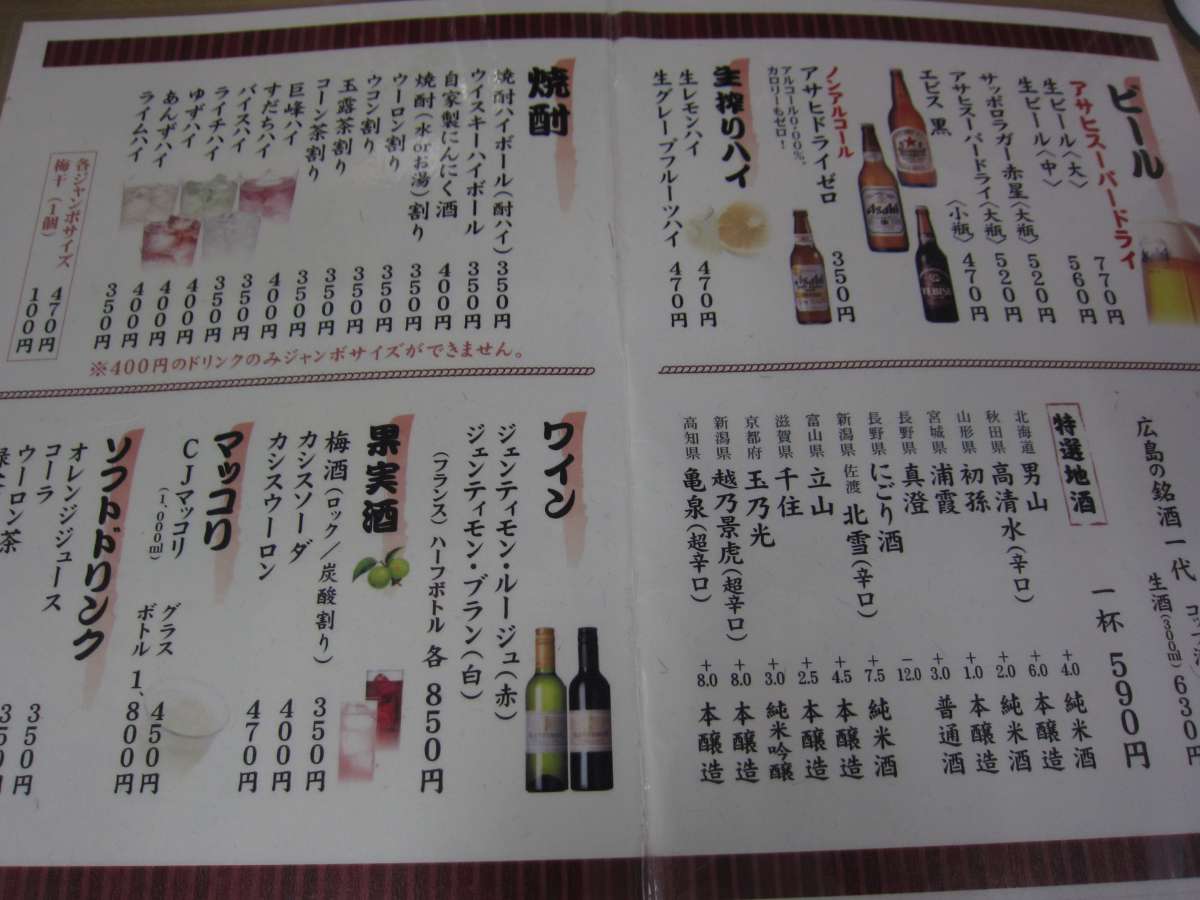 ビール
アサヒスーパードライ
生ビール〈大〉 770円
生ビール〈中〉 560円
サッポロラガー赤星〈大瓶〉 520円
アサヒスーパードライ〈大瓶〉 520円
エビス 黒 〈小瓶〉 470円
ノンアルコール
アサヒドライゼロ 350円
アルコール0.00%。
カロリーもゼロ！
生搾りハイ
生レモンハイ 470円
生グレープフルーツハイ 470円
焼酎
焼酎ハイボール(酎ハイ) 350円
ウイスキーハイボール 350円
自家製にんにく酒 400円
焼酎(水orお湯)割り 350円
ウーロン割り 350円
ウコン割り 350円
玉露茶割り 350円
コーン茶割り 350円
巨峰ハイ 400円
すだちハイ 350円
バイスハイ 350円
ライチハイ 400円
ゆずハイ 400円
あんずハイ 400円
ライムハイ 350円
各ジャンボサイズ 470円
梅干(1個) 100円
※400円のドリンクのみジャンボサイズができません。
広島の銘酒一代
生酒(300ml) 630円
一杯 590円
特選地酒
北海道 男山 +4.0 純米酒
秋田県 高清水(辛口) +6.0 本醸造
山形県 初孫 +2.0 純米酒
宮城県 浦霞 +1.0 本醸造
長野県 真澄 +3.0 普通酒
長野県 にごり酒 −12.0
新潟県 佐渡 北雪(辛口) +7.5 純米酒
富山県 立山 +4.5 本醸造
滋賀県 千住 +2.5 本醸造
京都府 玉乃光 +3.0 純米吟醸
新潟県 越乃景虎(超辛口) +8.0 本醸造
高知県 亀泉(超辛口) +8.0 本醸造
ワイン
ジェンティモン・ルージュ(赤)
ジェンティモン・ブラン(白)
(フランス) ハーフボトル 各 850円
果実酒
梅酒(ロック／炭酸割り) 350円
カシスソーダ 400円
カシスウーロン 470円
マッコリ
CJマッコリ グラス 450円
(1,000ml) ボトル 1,800円
ソフトドリンク
オレンジジュース 350円
コーラ 350円
ウーロン茶